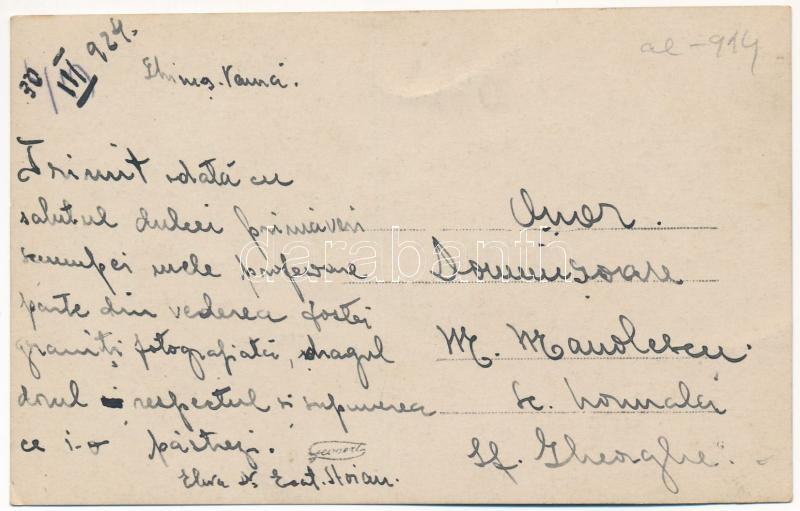 30/III 924.
al-914
Ghimeș. Vamă.
Trimit odată cu
salutul dulcei primăveri
scumpei mele profesoare
parte din vederea fostei
graniți fotografiată, dragul
dorul și respectul și supunerea
ce i-o păstrez.
Gevaert
Eleva Ecat. Stoian.
Onor.
Domnișoare
M. Manolescu.
Sc. Normală
Sf. Gheorghe.
darabanth